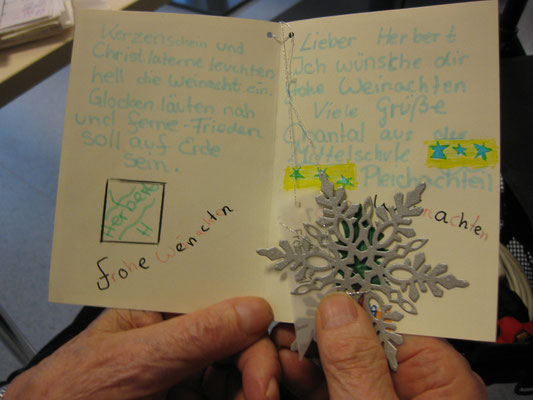 Kerzenschein und
Christlaterne leuchten
hell die Weinacht ein.
Glocken läuten nah
und ferne-Frieden
soll auf Erde
sein.
Herbert
H
frohe Weinichten
Lieber Herbert
Ich wünsche dir
frohe Weinachten
Viele Grüße
Chantal aus der
Mittelschule
Pleichachtal